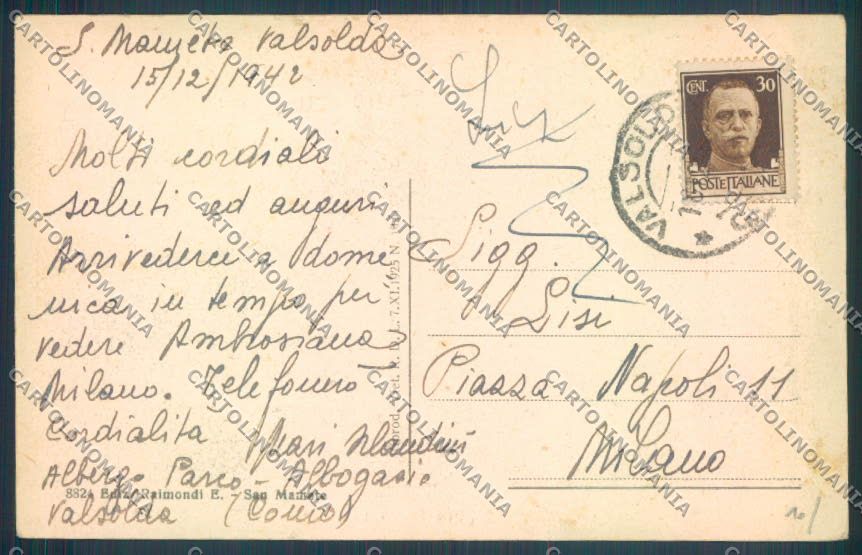 S. Mamete Valsolda
15/12/1942
Molti cordiali
saluti ed auguri
Arrivederci a dome
nica in tempo per
vedere Ambrosiana
Milano. Telefonerò
Cordialità
Alberg. Parco - Albogasio
Valsolda (Como)
8824 Ediz. Raimondi E. - San Mamete
CENT. 30
POSTE ITALIANE
VALSOLDA
Sigg.
Lisi
Piazza Napoli 11
Milano
CARTOLINOMANIA